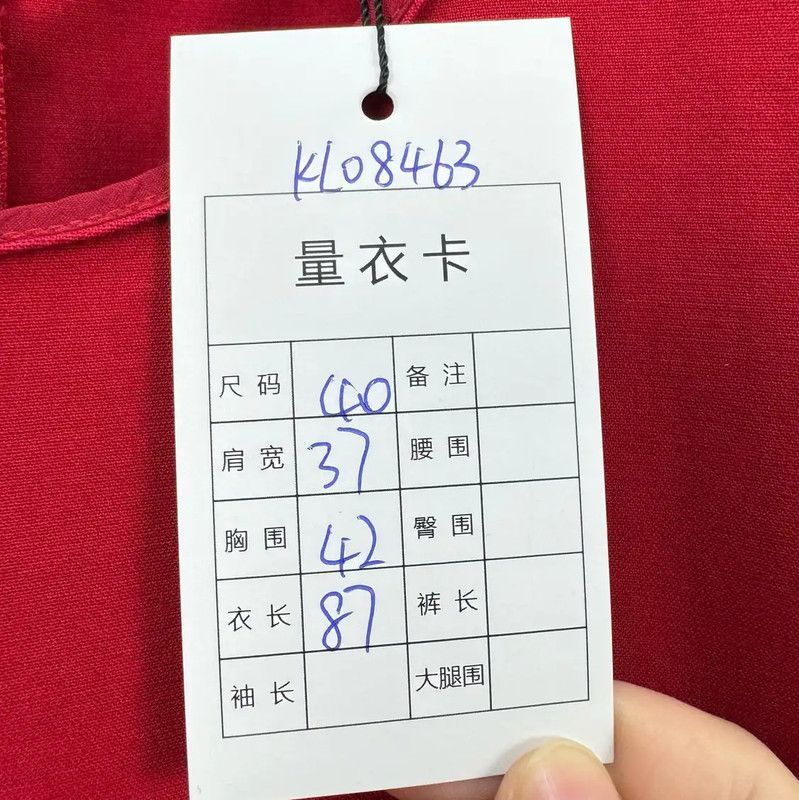 KL08463
量衣卡
尺码 40 备注
肩宽 37 腰围
胸围 42 臀围
衣长 87 裤长
袖长 大腿围